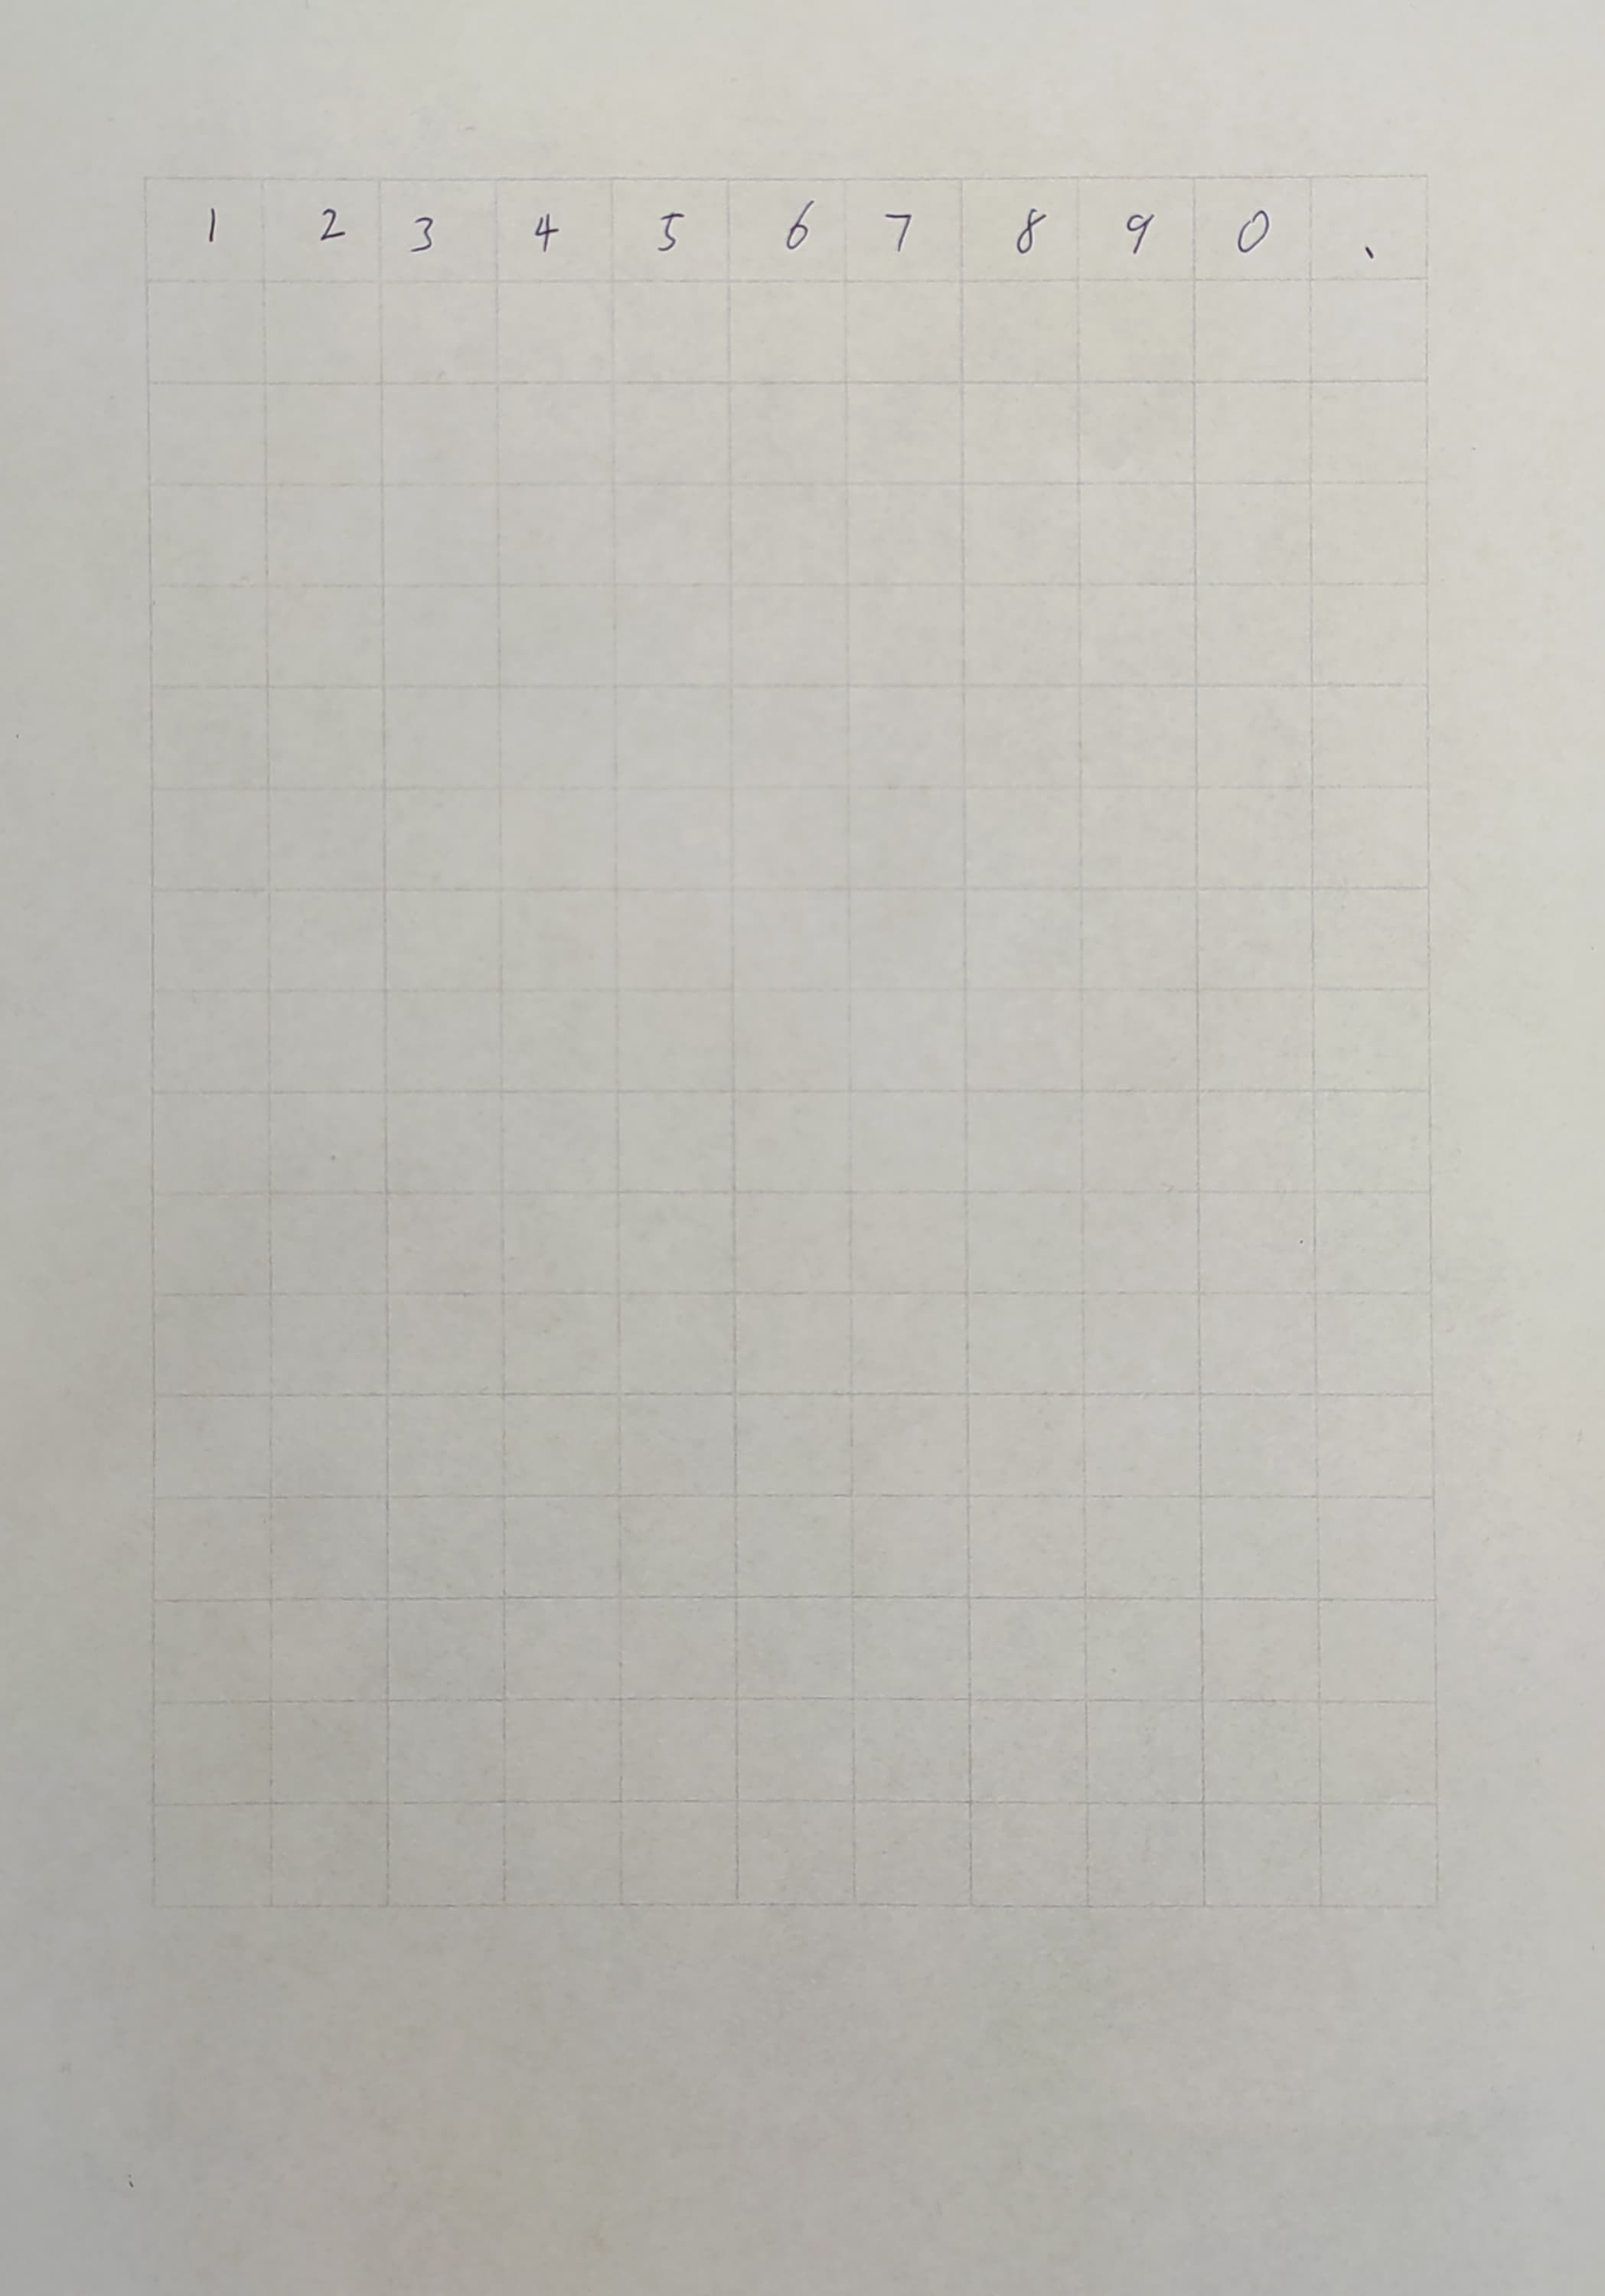 1 2 3 4 5 6 7 8 9 0 .